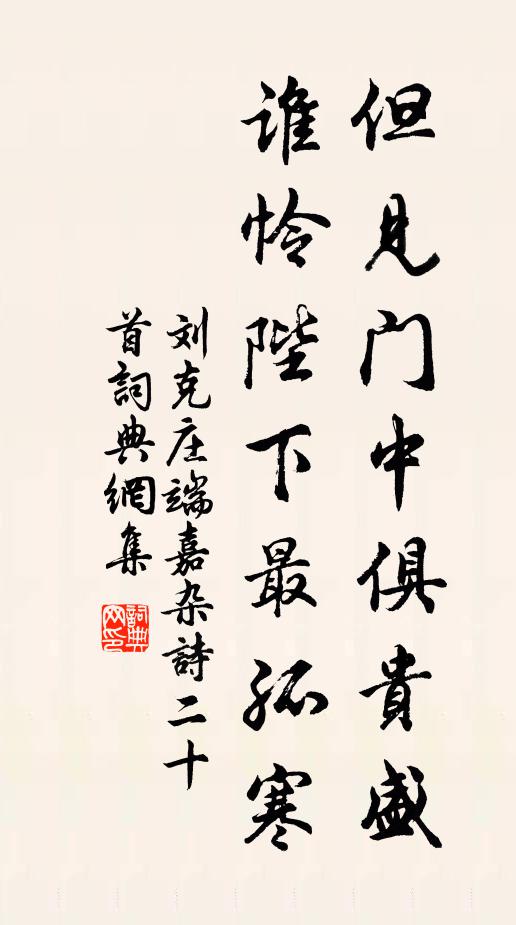 但見门中俱貴盛
谁怜陛下最孤寒
刘克庄端嘉杂詩二十
首詞典網集
詞典
网印